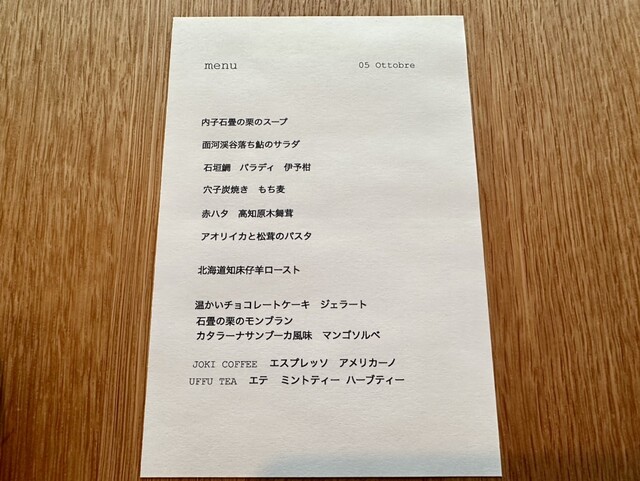 menu 05 Ottobre
内子石畳の栗のスープ
面河渓谷落ち鮎のサラダ
石垣鯛 パラディ 伊予柑
穴子炭焼き もち麦
赤ハタ 高知原木舞茸
アオリイカと松茸のパスタ
北海道知床仔羊ロースト
温かいチョコレートケーキ ジェラート
石畳の栗のモンブラン
カタラーナサンブーカ風味 マンゴソルベ
JOKI COFFEE エスプレッソ アメリカーノ
UFFU TEA エテ ミントティー ハーブティー